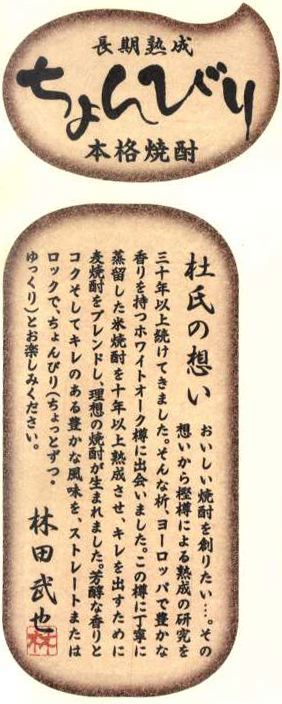 長期熟成
ちょんびり
本格焼酎
杜氏の想い
おいしい焼酎を創りたい…。その
想いから樫樽による熟成の研究を
三十年以上続けてきました。そんな折、ヨーロッパで豊かな
香りを持つホワイトオーク樽に出会いました。この樽に丁寧に
蒸留した米焼酎を十年以上熟成させ、キレを出すために
麦焼酎をブレンドし、理想の焼酎が生まれました。芳醇な香りと
コクそしてキレのある豊かな風味を、ストレートまたは
ロックで、ちょんびり（ちょっとずつ・
ゆっくり）とお楽しみください。
林田武也
林